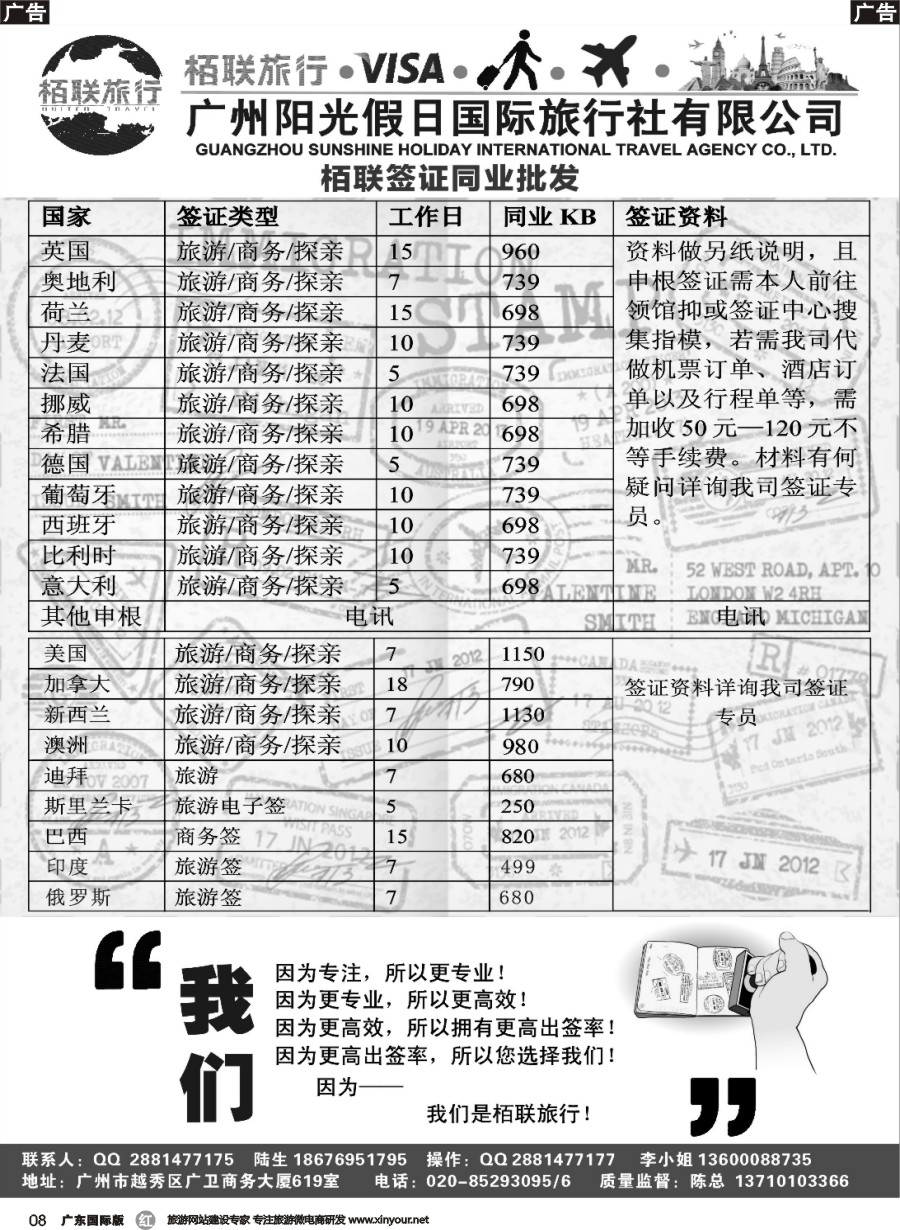 广告
广告
栢联旅行
UNITED TRAVEL
栢联旅行•VISA
广州阳光假日国际旅行社有限公司
GUANGZHOU SUNSHINE HOLIDAY INTERNATIONAL TRAVEL AGENCY CO., LTD.
栢联签证同业批发
国家 签证类型 工作日 同业 KB 签证资料
英国 旅游/商务/探亲 15 960
奥地利 旅游/商务/探亲 7 739
荷兰 旅游/商务/探亲 15 698
丹麦 旅游/商务/探亲 10 739
法国 旅游/商务/探亲 5 739
挪威 旅游/商务/探亲 10 698
希腊 旅游/商务/探亲 10 698
德国 旅游/商务/探亲 5 739
葡萄牙 旅游/商务/探亲 10 739
西班牙 旅游/商务/探亲 10 698
比利时 旅游/商务/探亲 10 739
意大利 旅游/商务/探亲 5 698
资料做另纸说明，且
申根签证需本人前往
领馆抑或签证中心搜
集指模，若需我司代
做机票订单、酒店订
单以及行程单等，需
加收 50 元—120 元不
等手续费。材料有何
疑问详询我司签证专
员。
其他申根 电讯 电讯
美国 旅游/商务/探亲 7 1150
加拿大 旅游/商务/探亲 18 790
新西兰 旅游/商务/探亲 7 1130
澳洲 旅游/商务/探亲 10 980
迪拜 旅游 7 680
斯里兰卡 旅游电子签 5 250
巴西 商务签 15 820
印度 旅游签 7 499
俄罗斯 旅游签 7 680
签证资料详询我司签证
专员
MR. 52 WEST ROAD, APT. 10
VALENTINE LONDON W2 4RH
SMITH ENGLAND MICHIGAN
17 JN 2012
“我们
因为专注，所以更专业！
因为更专业，所以更高效！
因为更高效，所以拥有更高出签率！
因为更高出签率，所以您选择我们！
因为——
我们是栢联旅行！
”
联系人：QQ 2881477175 陆生 18676951795 操作：QQ 2881477177 李小姐 13600088735
地址：广州市越秀区广卫商务大厦619室 电话：020-85293095/6 质量监督：陈总 13710103366
08 广东国际版 红 旅游网站建设专家 专注旅游微电商研发 www.xinyour.net